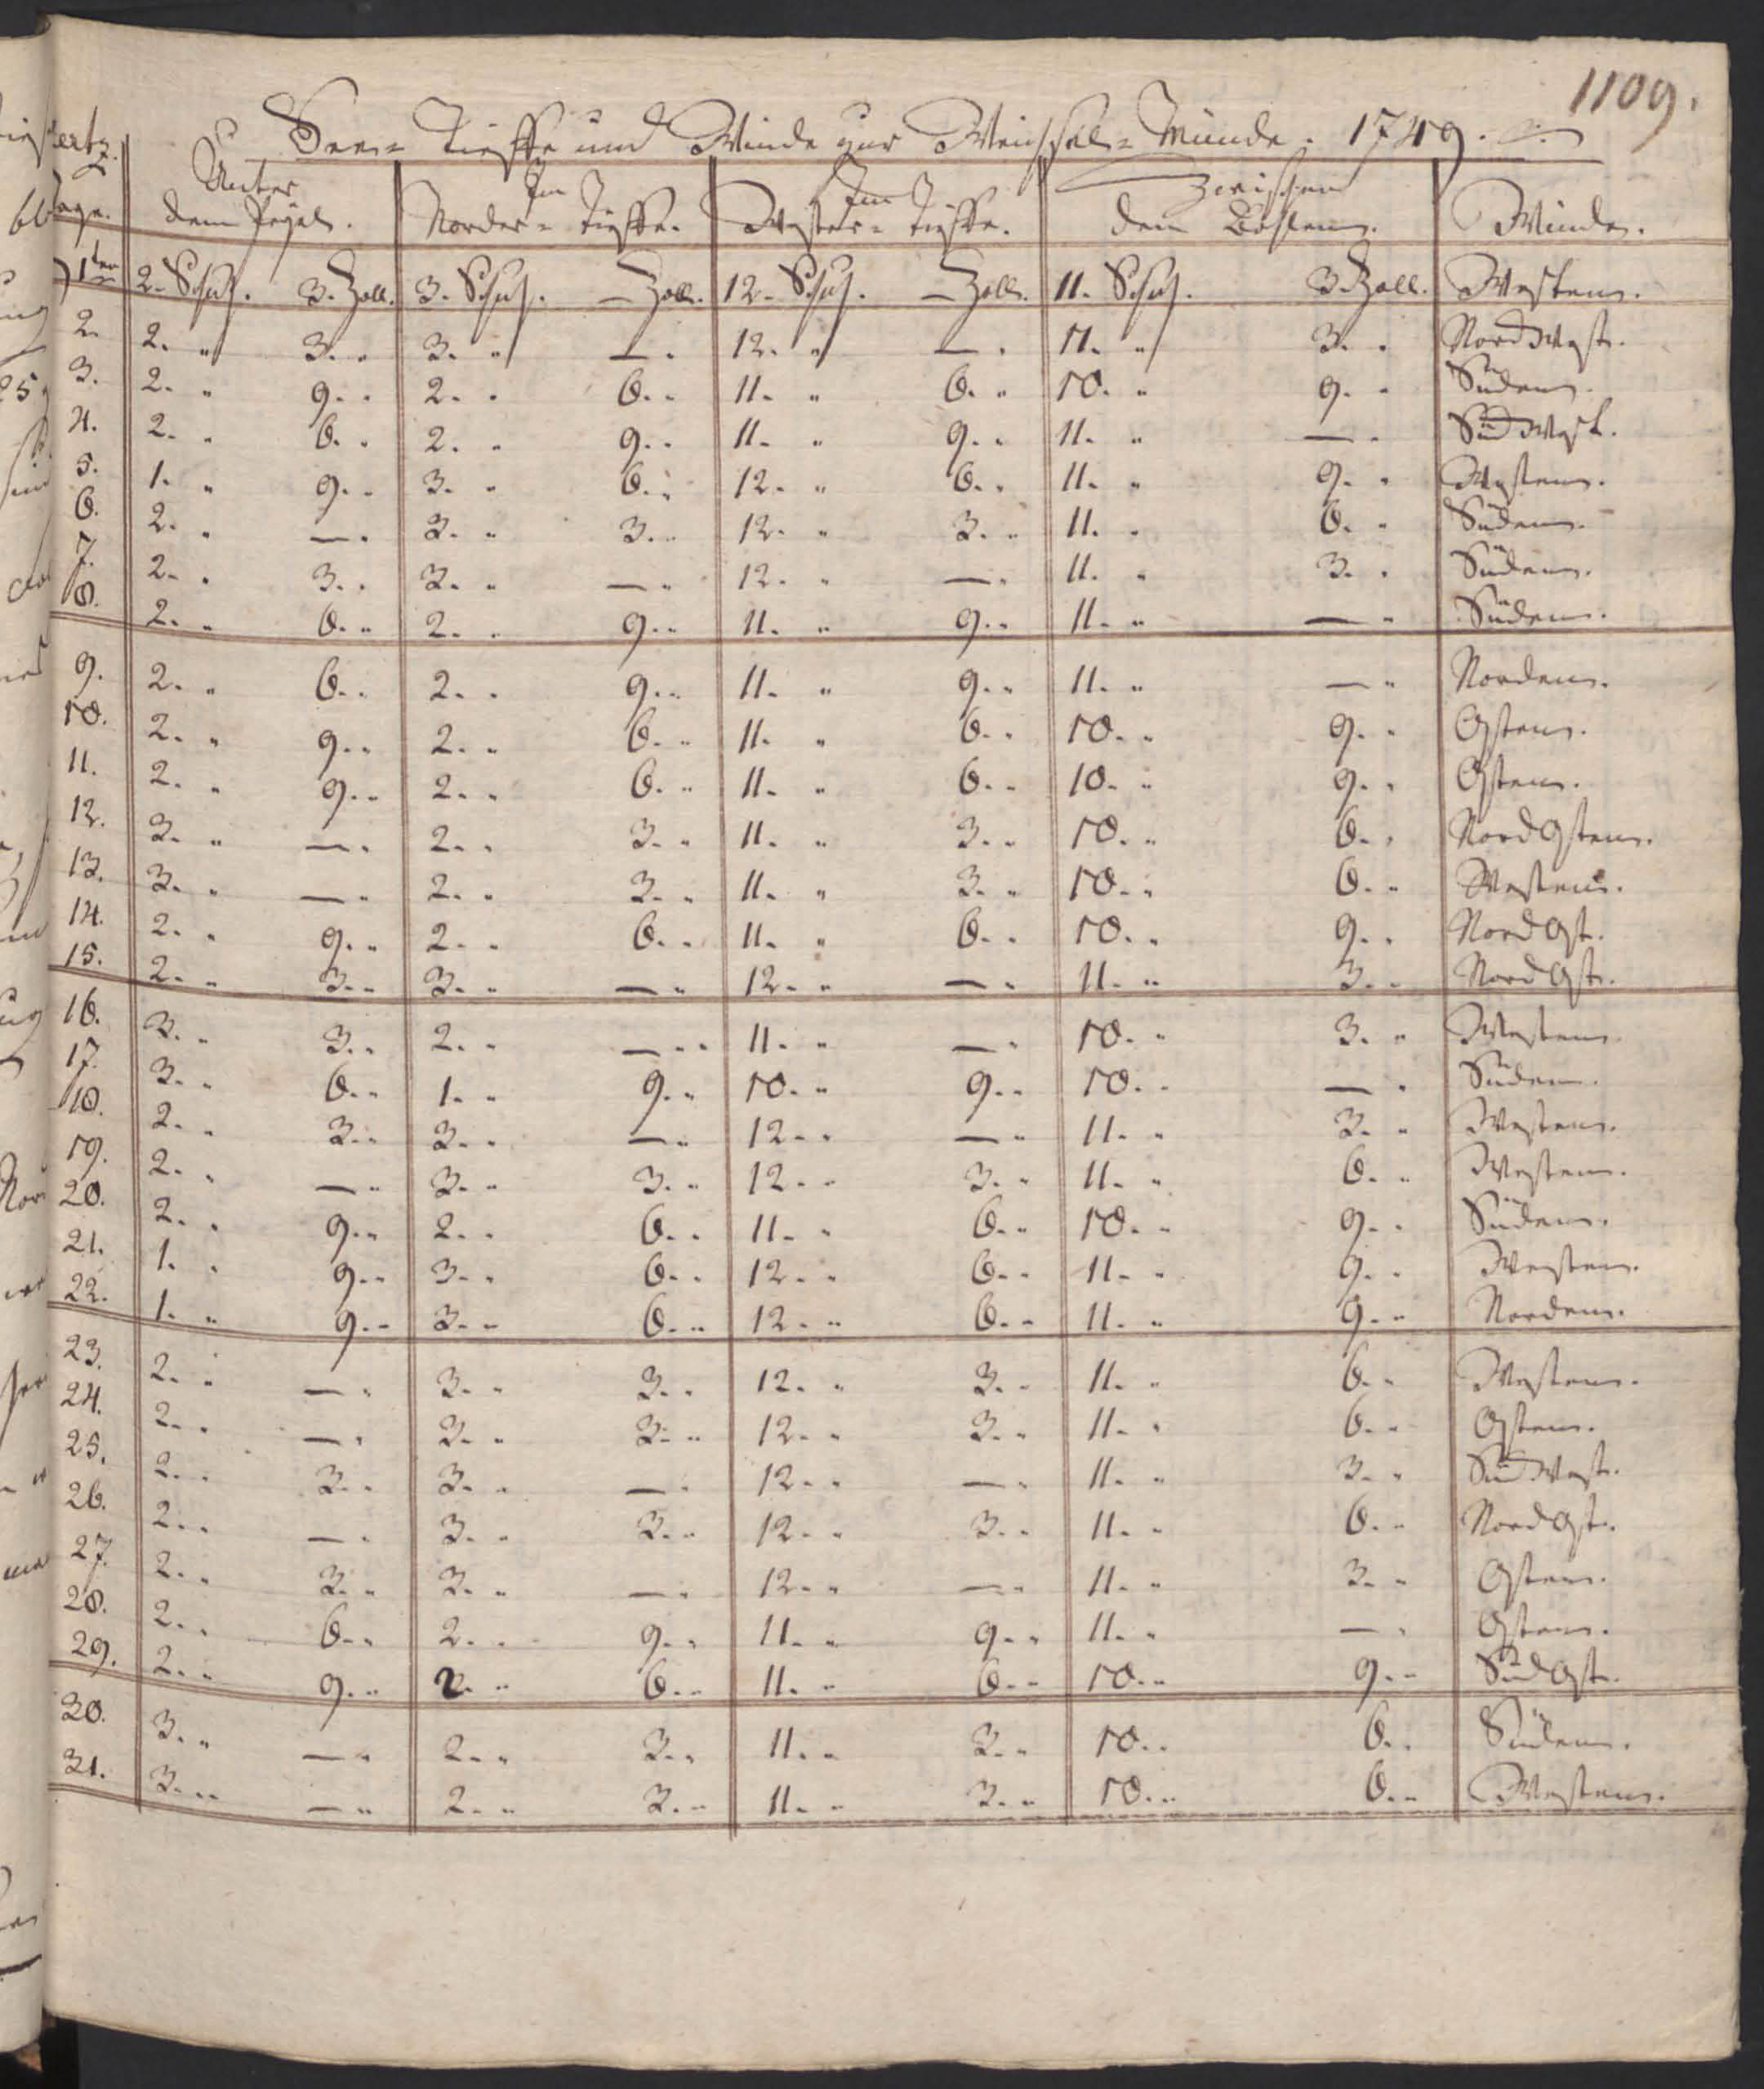 1109.
See- Tieffe und Winde zur Weichsel-Münde. 1749.
Unter dem Pegel. Im Norder-Tieffe. Im Wester-Tieffe. Zwischen den Winde.
1ter 2. Schuh. 3. Zoll. 3. Schuh. — Zoll. 12. Schuh. — Zoll. 11. Schuh. 3. Zoll. Westen.
2. 2. " 3. " 3. " — " 12. " — " 11. " 3. " NordWest.
3. 2. " 9. " 2. " 6. " 11. " 6. " 10. " 9. " Süden.
4. 2. " 6. " 2. " 9. " 11. " 9. " 11. " — " SüdWest.
5. 1. " 9. " 3. " 6. " 12. " 6. " 11. " 9. " Westen.
6. 2. " — " 3. " 3. " 12. " 3. " 11. " 6. " Süden.
7. 2. " 3. " 3. " — " 12. " — " 11. " 3. " Süden.
8. 2. " 6. " 2. " 9. " 11. " 9. " 11. " — " Süden.
9. 2. " 6. " 2. " 9. " 11. " 9. " 11. " — " Norden.
10. 2. " 9. " 2. " 6. " 11. " 6. " 10. " 9. " Osten.
11. 2. " 9. " 2. " 6. " 11. " 6. " 10. " 9. " Osten.
12. 3. " — " 2. " 3. " 11. " 3. " 10. " 6. " NordOsten.
13. 3. " — " 2. " 3. " 11. " 3. " 10. " 6. " Westen.
14. 2. " 9. " 2. " 6. " 11. " 6. " 10. " 9. " NordOst.
15. 2. " 3. " 3. " — " 12. " — " 11. " 3. " NordOst.
16. 3. " 3. " 2. " — " 11. " — " 10. " 3. " Westen.
17. 3. " 6. " 1. " 9. " 10. " 9. " 10. " — " Süden.
18. 2. " 3. " 3. " — " 12. " — " 11. " 3. " Westen.
19. 2. " — " 3. " 3. " 12. " 3. " 11. " 6. " Westen.
20. 2. " 9. " 2. " 6. " 11. " 6. " 10. " 9. " Süden.
21. 1. " 9. " 3. " 6. " 12. " 6. " 11. " 9. " Westen.
22. 1. " 9. " 3. " 6. " 12. " 6. " 11. " 9. " Norden.
23. 2. " — " 3. " 3. " 12. " 3. " 11. " 6. " Westen.
24. 2. " — " 3. " 3. " 12. " 3. " 11. " 6. " Osten.
25. 2. " 3. " 3. " — " 12. " — " 11. " 3. " SüdWest.
26. 2. " — " 3. " 3. " 12. " 3. " 11. " 6. " NordOst.
27. 2. " 3. " 3. " — " 12. " — " 11. " 3. " Osten.
28. 2. " 6. " 2. " 9. " 11. " 9. " 11. " — " Osten.
29. 2. " 9. " 2. " 6. " 11. " 6. " 10. " 9. " SüdOst.
30. 3. " — " 2. " 3. " 11. " 3. " 10. " 6. " Süden.
31. 3. " — " 2. " 3. " 11. " 3. " 10. " 6. " Westen.